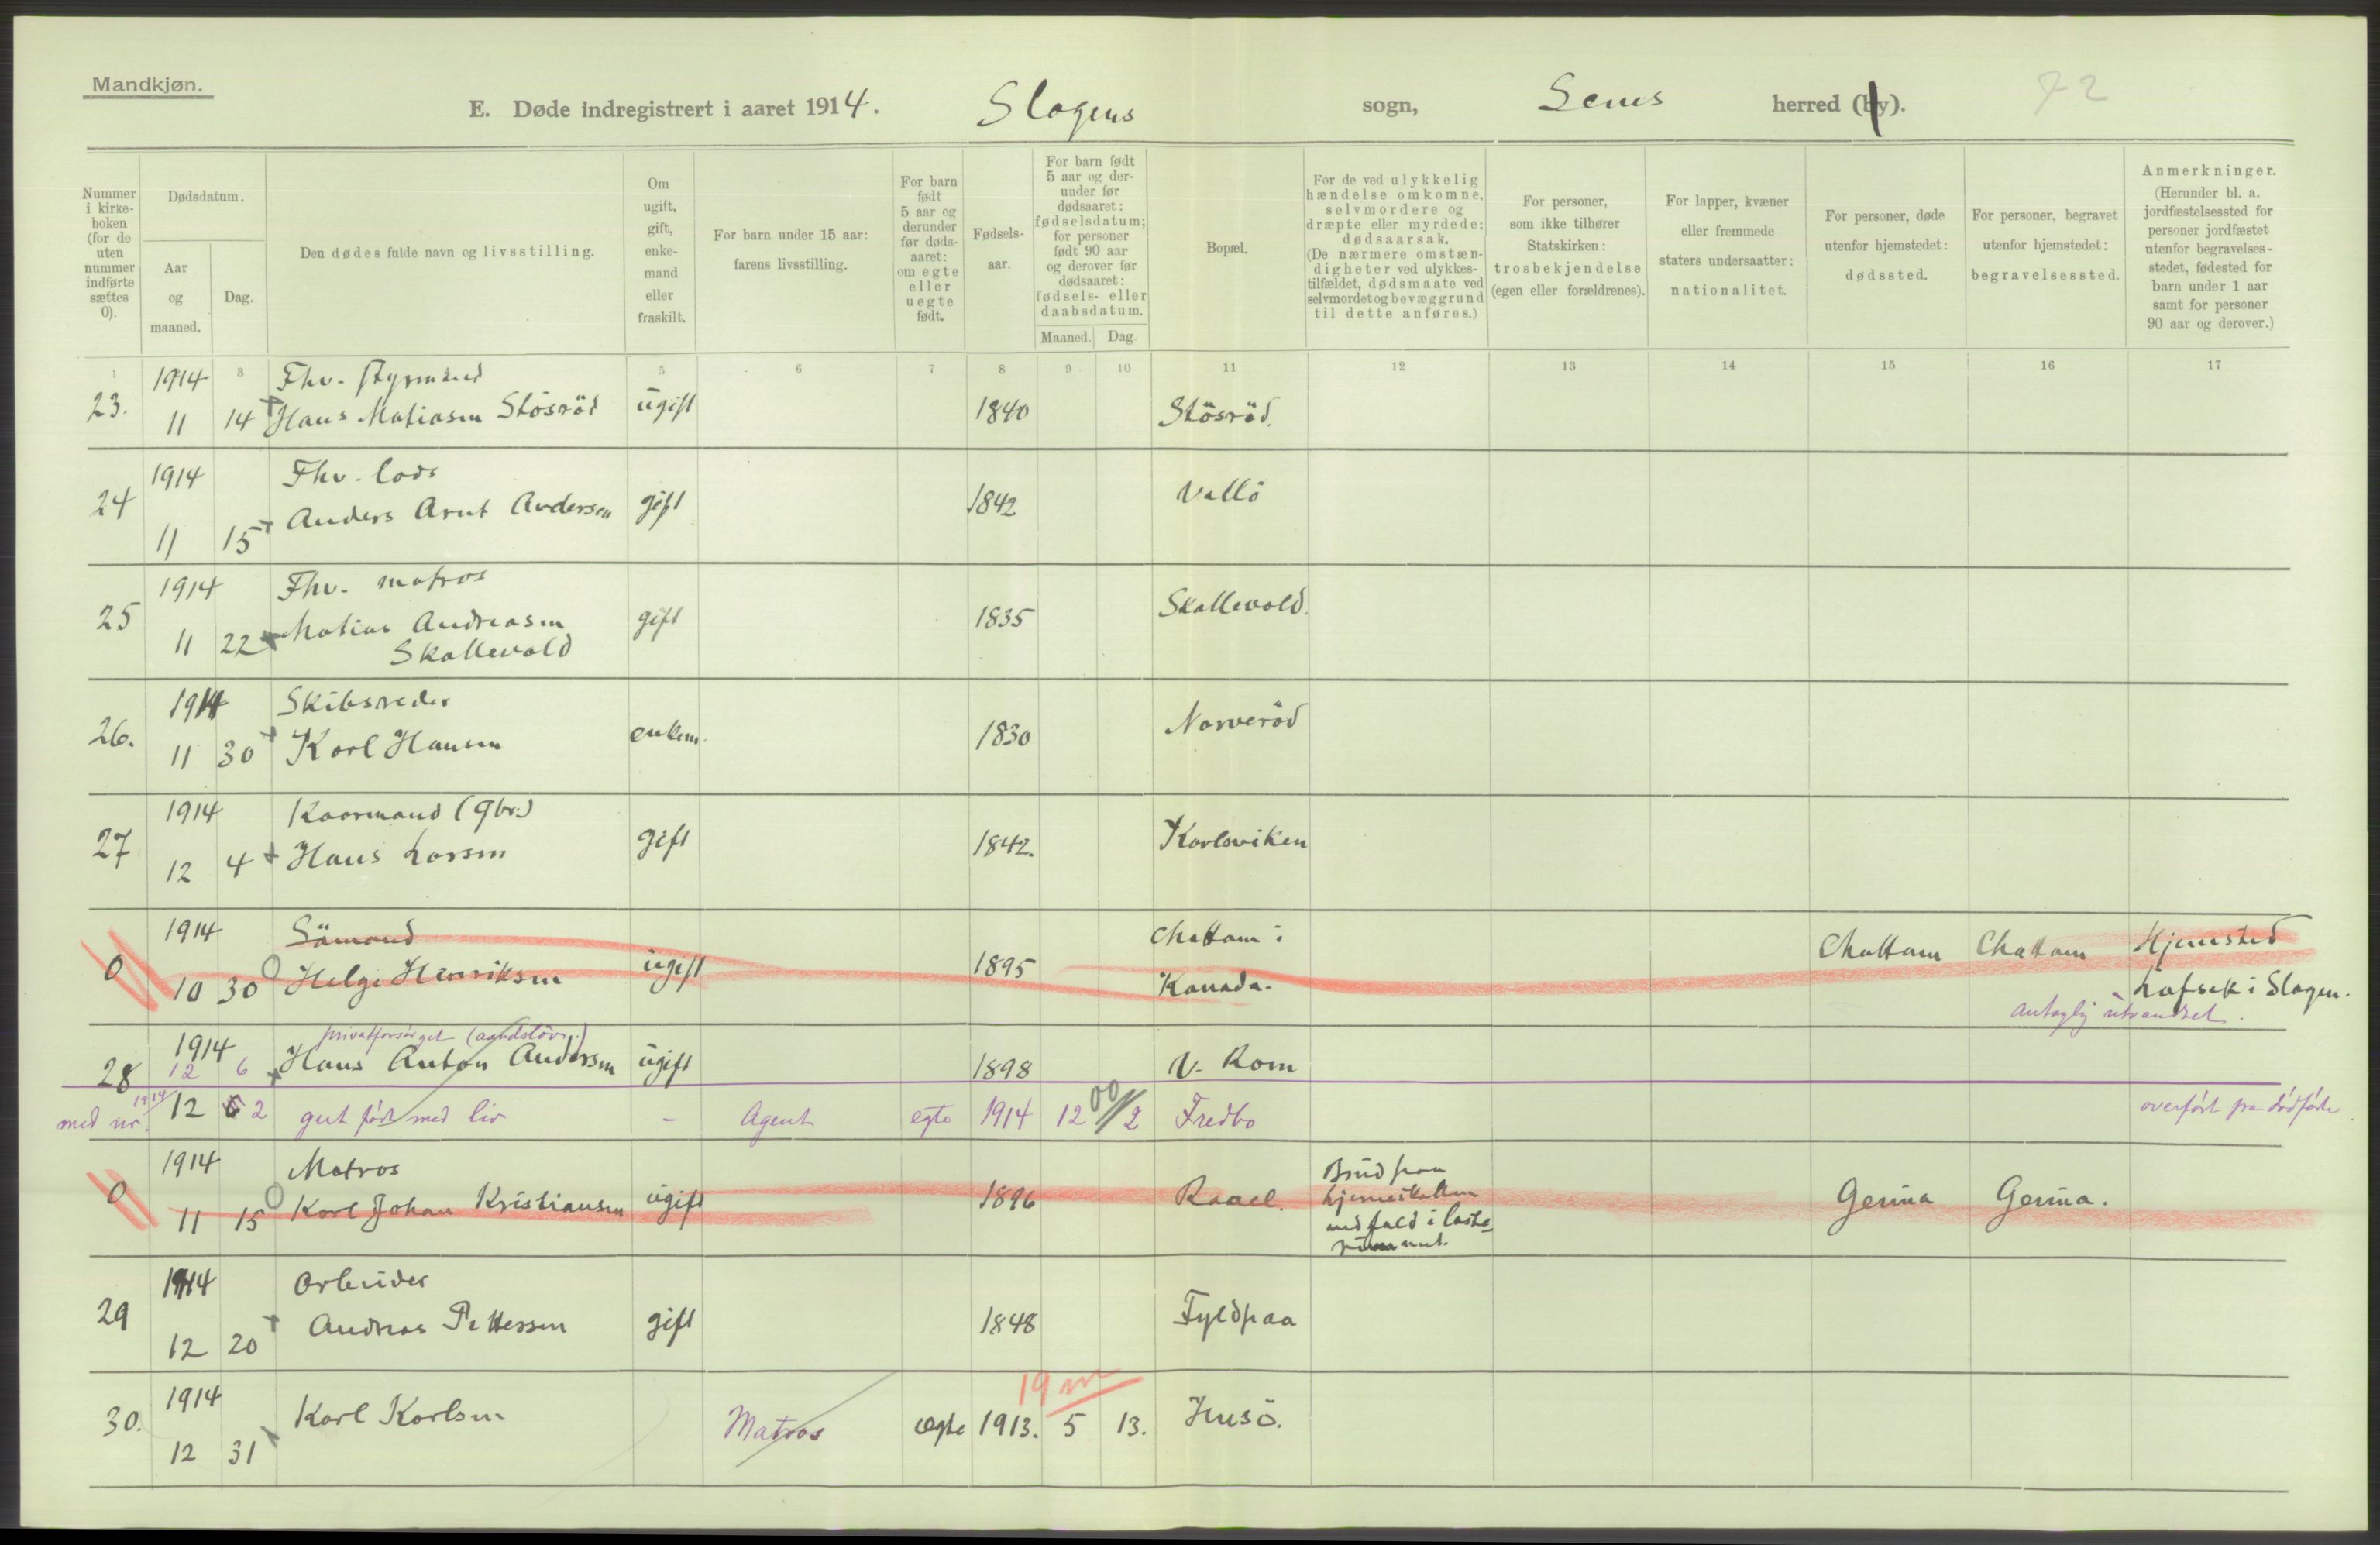 Mandkjøn.
E. Døde indregistrert i aaret 1914. Slagens sogn, Sems herred (by). 72
Nummer i kirke-boken (for de uten nummer indførte sættes 0).
Dødsdatum.
Aar og maaned.
Dag.
Den dødes fulde navn og livsstilling.
Om ugift, gift, enke-mand eller fraskilt.
For barn under 15 aar: farens livsstilling.
For barn født 5 aar og derunder før døds-aaret: om egte eller uegte født.
Fødsels-aar.
For barn født 5 aar og der-under før dødsaaret: fødselsdatum; for personer født 90 aar og derover før dødsaaret: fødsels- eller daabsdatum.
Maaned. Dag.
Bopæl.
For de ved ulykkelig hændelse omkomne, selvmordere og dræpte eller myrdede: dødsaarsak. (De nærmere omstæn-digheter ved ulykkes-tilfældet, dødsmaate ved selvmordet og bevæggrund til dette anføres.)
For personer, som ikke tilhører Statskirken: trosbekjendelse (egen eller forældrenes).
For lapper, kvæner eller fremmede staters undersaatter: nationalitet.
For personer, døde utenfor hjemstedet: dødssted.
For personer, begravet utenfor hjemstedet: begravelsessted.
Anmerkninger. (Herunder bl. a. jordfæstelsessted for personer jordfæstet utenfor begravelses-stedet, fødested for barn under 1 aar samt for personer 90 aar og derover.)
1 3 5 6 7 8 9 10 11 12 13 14 15 16 17
1914 Fhv. styrmand
23. 11 14 Hans Matiasen Stösröd ugift 1840 Stösröd.
1914 Fhv. lods
24 11 15 Anders Arnt Andersen gift 1842 Vallö
1914 Fhv. matros
25 11 22 Matias Andreasen gift 1835 Skallevold.
Skallevold
1914 Skibsreder
26. 11 30 Karl Hansen enkem. 1830 Narveröd
1914 Kaarmand (gbr.)
27 12 4 Hans Larsen gift 1842. Karlsviken
1914 Sömand Chattam i
0 10 30 Helge Henriksen ugift 1895 Kanada. Chattam Chattam Hjemsted
Lofsek i Slagen.
antaglig utvandret.
1914 privatforsörget (aandslöv)
28 12 6 Hans Anton Andersen ugift 1898 V. Rom
med nr. 1914 12 2 gut født med liv - Agent egte 1914 12 2 Fredbo overført fra dødfødte.
1914 Matros
0 11 15 Karl Johan Kristiansen ugift 1896 Raael. Genua Genua.
Brud paa
hjerneskallen
ved fald i laste-
rummet.
1914 Arbeider
29 12 20 Andreas Pettersen gift 1848 Fyldpaa
1914 19 m
30. 12 31 Karl Karlsen Matros egte 1913. 5 13. Husö.